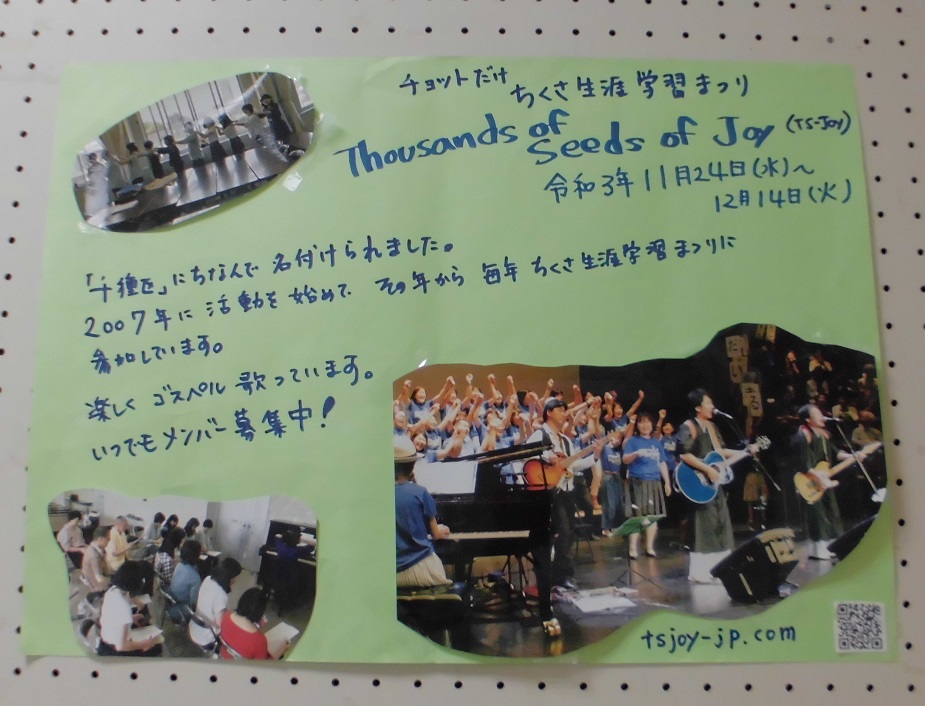 チョットだけ ちくさ生涯学習まつり
Thousands of Seeds of Joy (TS-JOY)
令和3年 11月24日(水)~
12月14日(火)
「千種区」にちなんで 名付けられました。
2007年に 活動を 始めて その年から 毎年 ちくさ生涯学習まつりに
参加しています。
楽しく ゴスペル 歌っています。
いつでもメンバー募集中!
tsjoy-jp.com